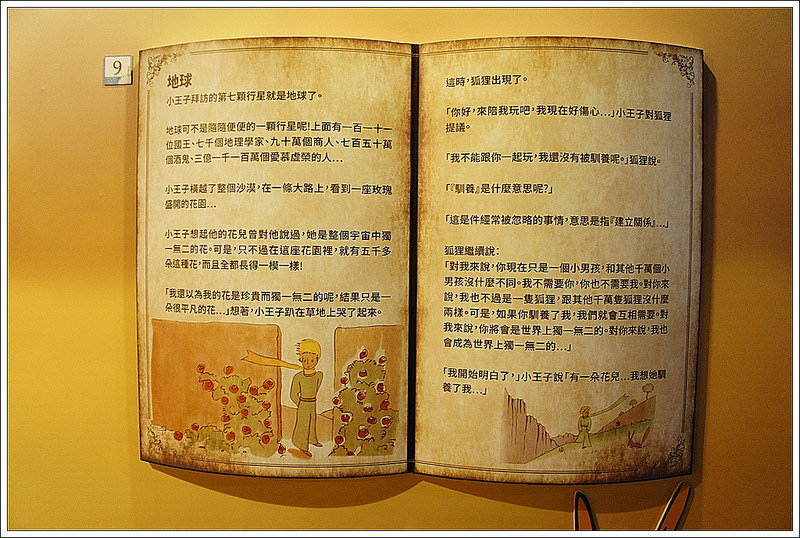 9
地球
小王子拜訪的第七顆行星就是地球了。
地球可不是隨隨便便的一顆行星呢!上面有一百一十一
位國王、七千個地理學家、九十萬個商人、七百五十萬
個酒鬼、三億一千一百萬個愛慕虛榮的人…
小王子橫越了整個沙漠,在一條大路上,看到一座玫瑰
盛開的花園…
小王子想起他的花兒曾對他說過,她是整個宇宙中獨
一無二的花。可是,只不過在這座花園裡,就有五千多
朵這種花,而且全都長得一模一樣!
「我還以為我的花是珍貴而獨一無二的呢,結果只是一
朵很平凡的花…」想著,小王子趴在草地上哭了起來。
這時,狐狸出現了。
「你好,來陪我玩吧,我現在好傷心…」小王子對狐狸
提議。
「我不能跟你一起玩,我還沒有被馴養呢。」狐狸說。
「『馴養』是什麼意思呢?」
「這是件經常被忽略的事情,意思是指『建立關係』…」
狐狸繼續說:
「對我來說,你現在只是一個小男孩,和其他千萬個小
男孩沒什麼不同。我不需要你,你也不需要我。對你來
說,我也不過是一隻狐狸,跟其他千萬隻狐狸沒什麼
兩樣。可是,如果你馴養了我,我們就會互相需要。對
我來說,你將會是世界上獨一無二的。對你來說,我也
會成為世界上獨一無二的…」
「我開始明白了,」小王子說「有一朵花兒…我想她馴
養了我…」